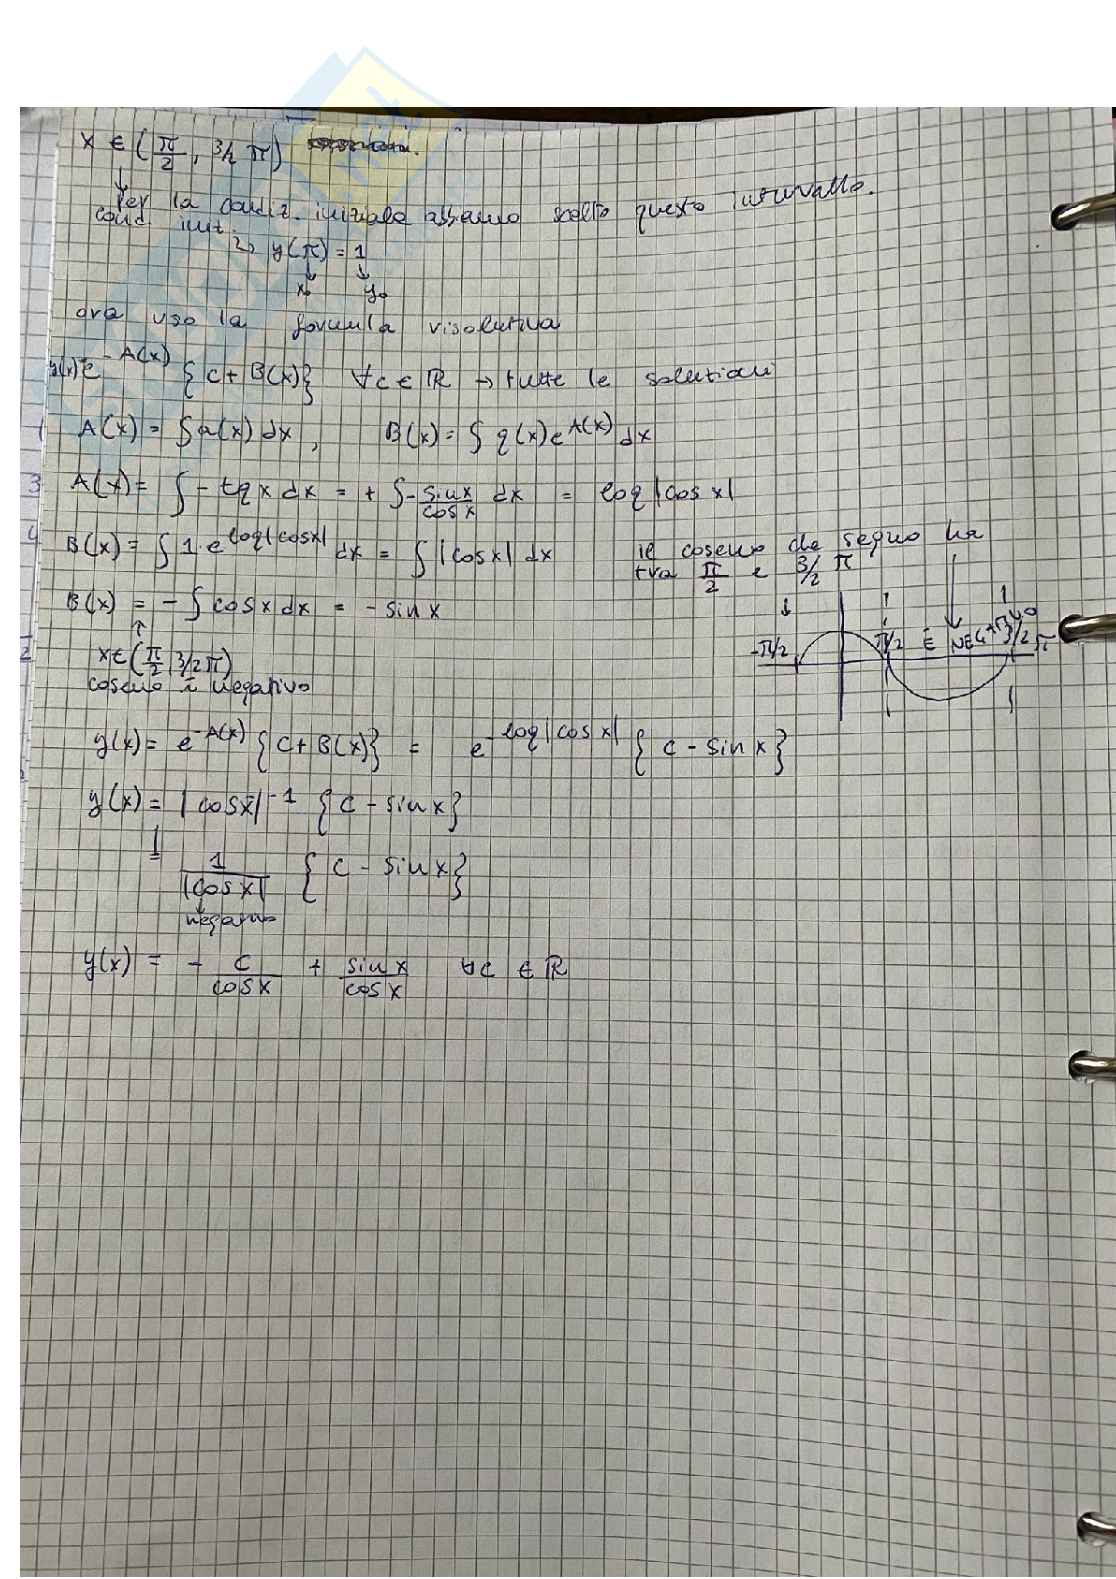 x ∈ (π/2, 3/2 π)
↓
Per la condiz. iniziale abbiamo scelto questo intervallo.
cond. iniz.
↳ y(π) = 1
↓ ↓
x₀ y₀
ora uso la formula risolutiva
y(x)= e^-A(x) {c + B(x)} ∀c ∈ ℝ → tutte le soluzioni
1 A(x) = ∫a(x) dx, B(x) = ∫ q(x) e^A(x) dx
3 A(x) = ∫ - tg x dx = + ∫ - sin x/cos x dx = log |cos x|
4 B(x) = ∫ 1 · e^log|cos x| dx = ∫ |cos x| dx
il coseno che segno ha
tra π/2 e 3/2 π
↓
B(x) = - ∫ cos x dx = - sin x
↑
-π/2 π/2 È NEGATIVO 3/2 π
2 x ∈ (π/2, 3/2 π)
coseno è negativo
y(x) = e^-A(x) {c + B(x)} = e^-log|cos x| {c - sin x}
y(x) = |cos x|^-1 {c - sin x}
= 1/|cos x| {c - sin x}
↓
negativo
y(x) = - c/cos x + sin x/cos x ∀c ∈ ℝ